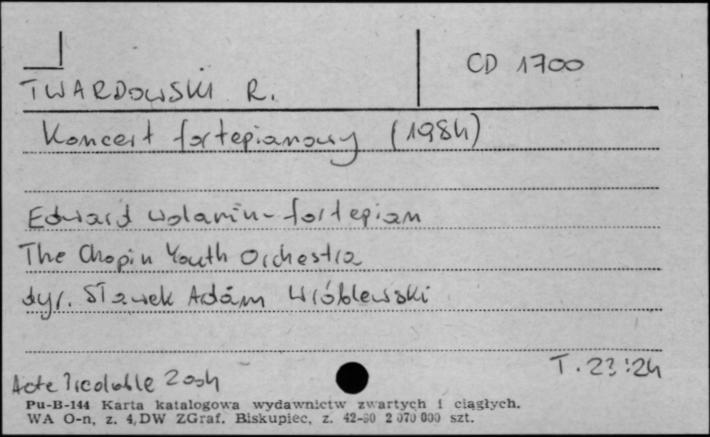 CD 1700
TWARDOWSKI R.
Koncert fortepianowy (1984)
Edward Wolanin - fortepian
The Chopin Youth Orchestra
dyr. Sławek Adam Wróblewski
T. 23:24
Acte Préalable 2004
Pu-B-144 Karta katalogowa wydawnictw zwartych i ciągłych.
WA O-n, z. 4, DW ZGraf. Biskupiec, z. 42-80 2 070 000 szt.